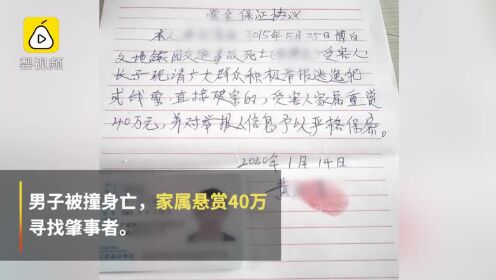 梨视频
赏金保证协议
本人 2015年5月25日博白
交通事故死亡 受害人
长子现请广大群众积极举报逃逸犯
或线索,直接破案的,受害人家属重赏
40万元,并对举报人信息予以严格保密。
2020年1月14日
黄
男子被撞身亡,家属悬赏40万
寻找肇事者。